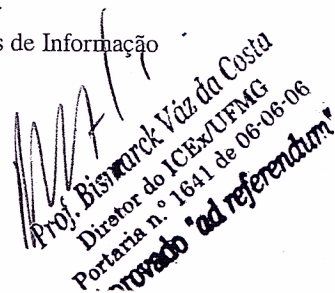 s de Informação
Prof. Bismarck Váz da Costa
Diretor do ICEx/UFMG
Portaria n.º 1641 de 06-06-06
provado "ad referendum"